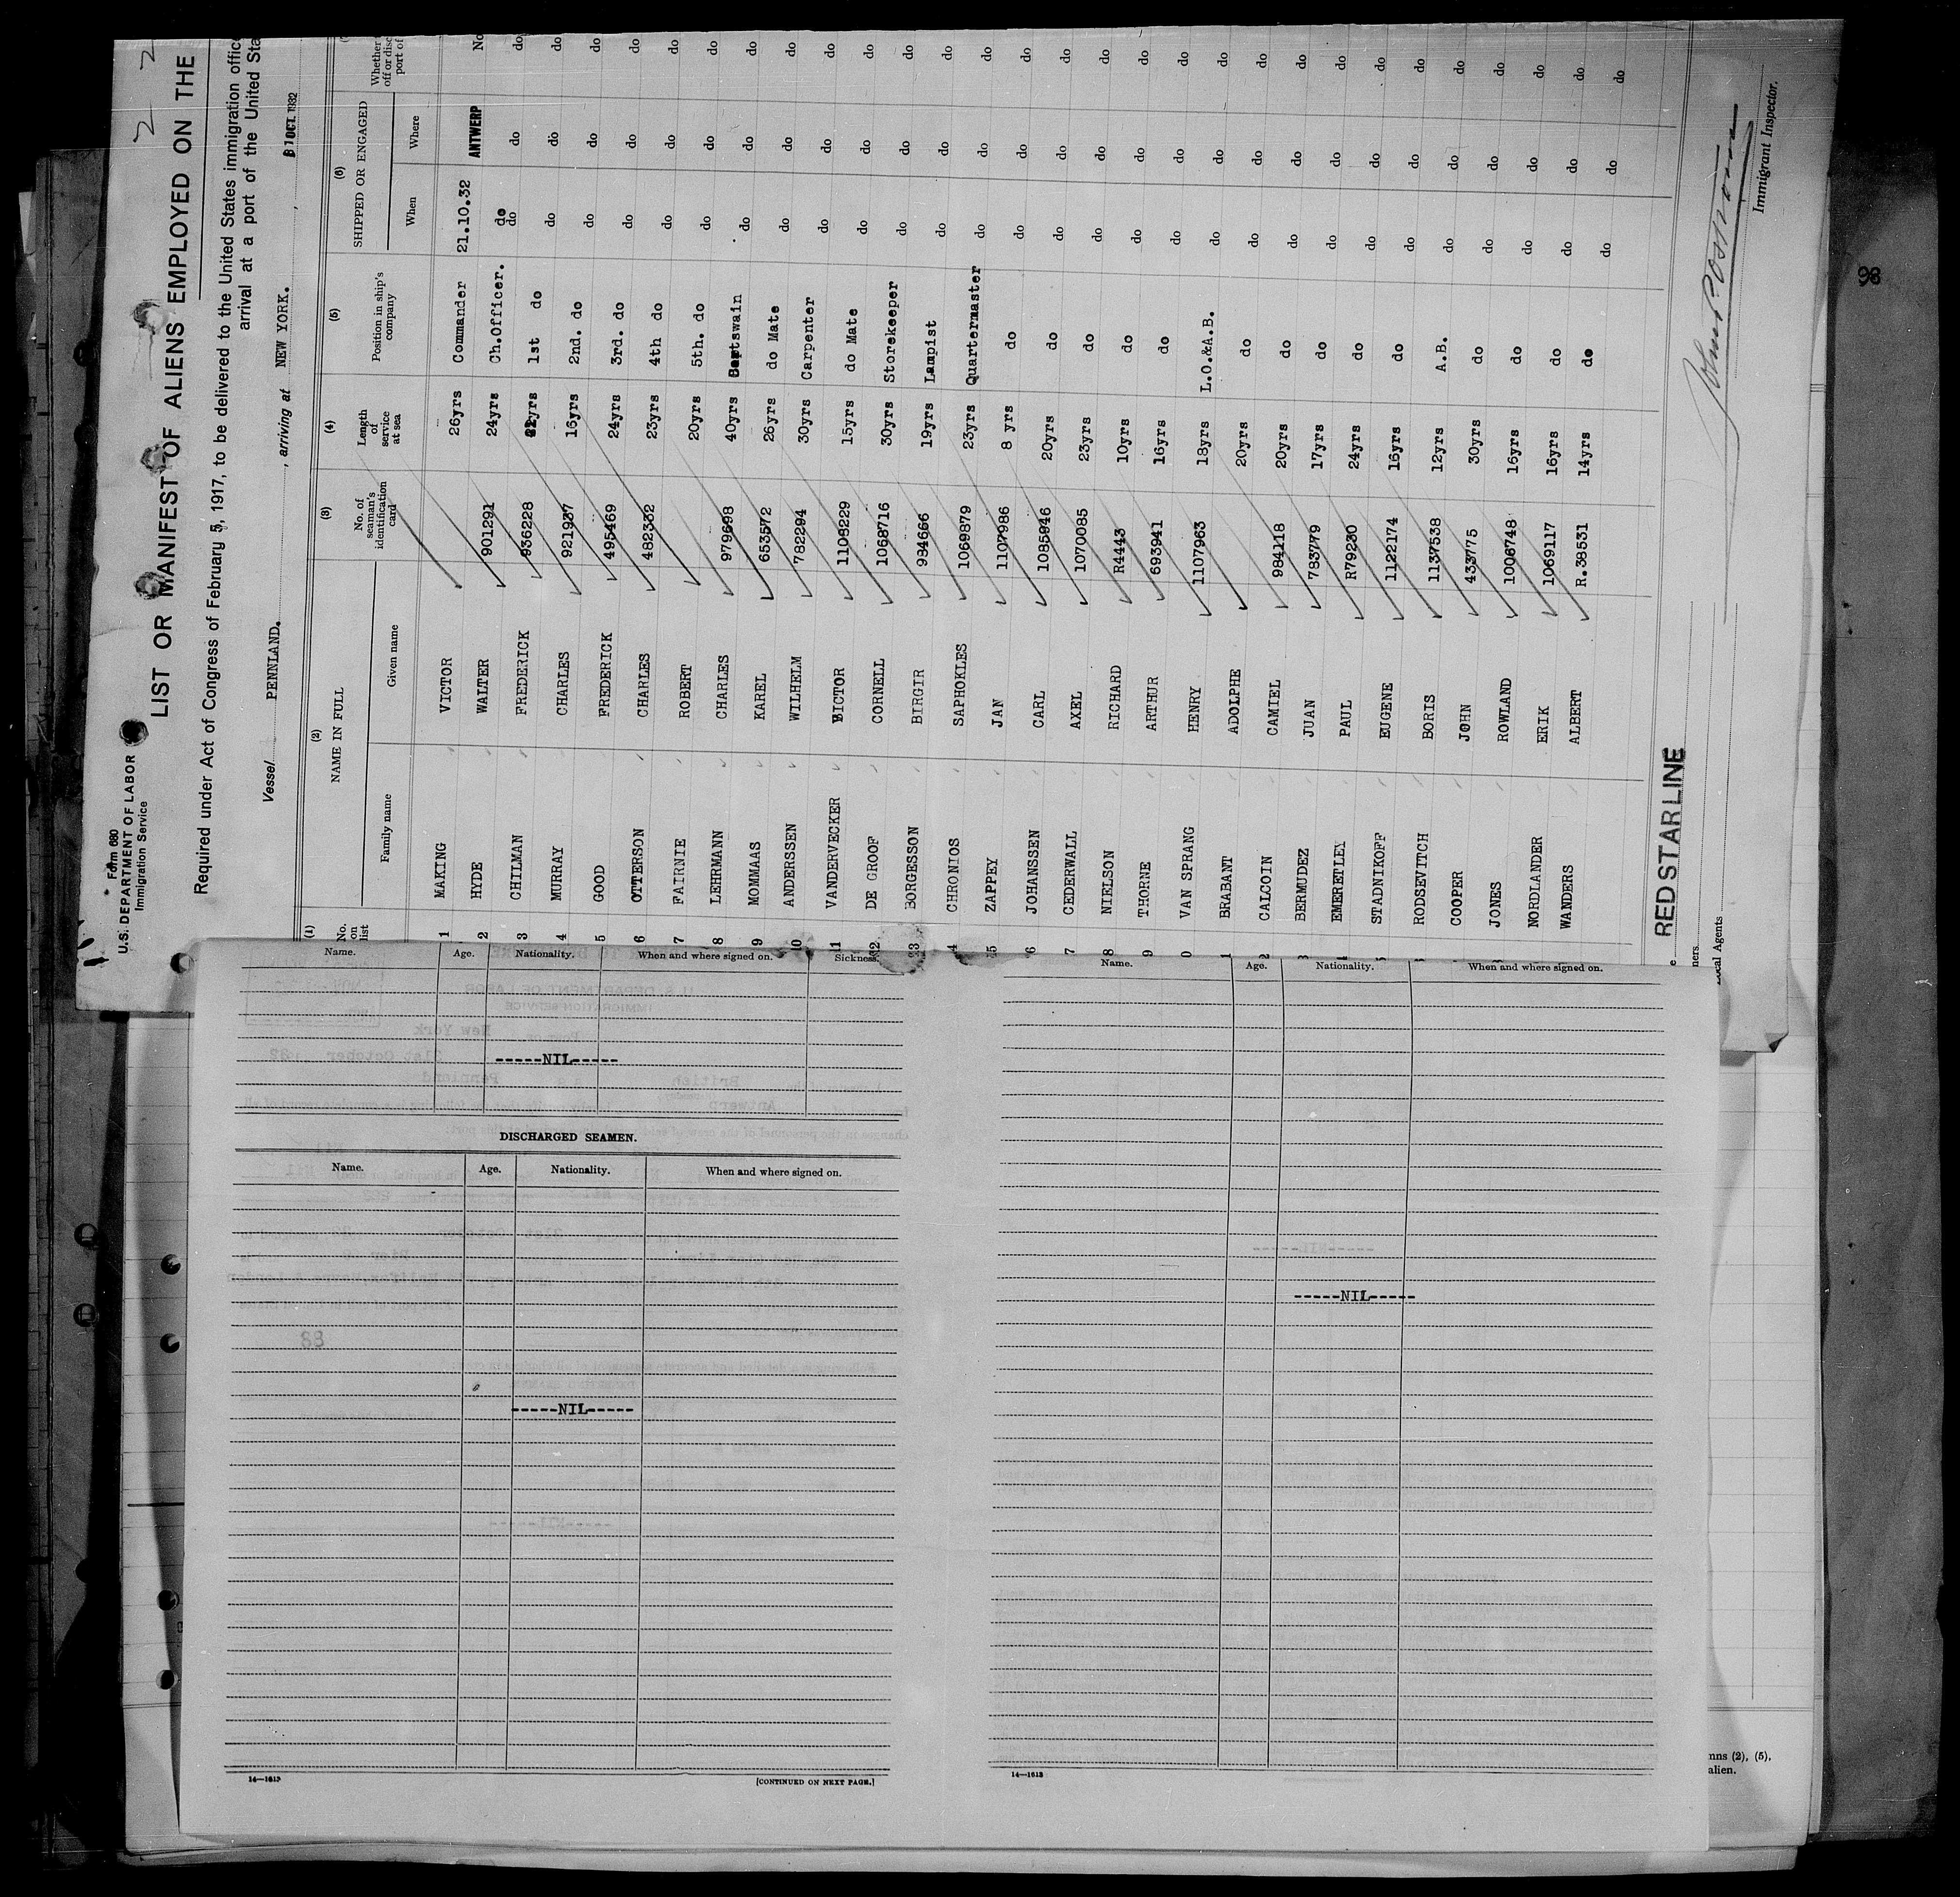 Form 680
U.S. DEPARTMENT OF LABOR
Immigration Service
2 2
LIST OR MANIFEST OF ALIENS EMPLOYED ON THE
Required under Act of Congress of February 5, 1917, to be delivered to the United States immigration
arrival at a port of the United
Vessel PENNLAND. , arriving at NEW YORK. , 31 OCT. 1932
(1) (2) (3) (4) (5) (6)
No. on list NAME IN FULL No. of seaman's identification card Length of service at sea Position in ship's company SHIPPED OR ENGAGED Whether
off or
port of
Family name Given name When Where
1 MAKING VICTOR 26yrs Commander 21.10.32 ANTWERP No
2 HYDE WALTER 901291 24yrs Ch.Officer. do do do
3 CHILMAN FREDERICK 936228 1st do do do do
4 MURRAY CHARLES 921937 16yrs 2nd. do do do do
5 GOOD FREDERICK 495469 24yrs 3rd. do do do do
6 OTTERSON CHARLES 482332 23yrs 4th do do do do
7 FAIRNIE ROBERT 20yrs 5th. do do do do
8 LEHRMANN CHARLES 979698 40yrs Boatswain do do do
9 MOMMAAS KAREL 653572 26yrs do Mate do do do
10 ANDERSSEN WILHELM 782294 30yrs Carpenter do do do
11 VANDERVECKER VICTOR 1108229 15yrs do Mate do do do
12 DE GROOF CORNELL 1068716 30yrs Storekeeper do do do
13 BORGESSON BIRGIR 984666 19yrs Lampist do do do
4 CHRONIOS SAPHOKLES 1069879 23yrs Quartermaster do do do
15 ZAPPEY JAN 1107986 8 yrs do do do do
6 JOHANSSEN CARL 1085946 20yrs do do do do
7 CEDERWALL AXEL 1070085 23yrs do do do do
8 NIELSON RICHARD R4443 10yrs do do do do
9 THORNE ARTHUR 693941 16yrs do do do do
0 VAN SPRANG HENRY 1107963 18yrs L.O.&A.B. do do do
1 BRABANT ADOLPHE 20yrs do do do do
2 CALCOIN CAMIEL 984118 20yrs do do do do
3 BERMUDEZ JUAN 783779 17yrs do do do do
EMERETLEY PAUL R79230 24yrs do do do do
STADNIKOFF EUGENE 1122174 16yrs do do do do
RODSEVITCH BORIS 1137538 12yrs A.B. do do do
COOPER JOHN 433775 30yrs do do do do
JONES ROWLAND 1006748 16yrs do do do do
NORDLANDER ERIK 1069117 16yrs do do do do
WANDERS ALBERT R.38531 14yrs do do do do
RED STAR LINE
Local Agents
Immigrant Inspector.
98
Name. Age. Nationality. When and where signed on. Sickness.
-----NIL-----
DISCHARGED SEAMEN.
Name. Age. Nationality. When and where signed on.
-----NIL-----
14—1613 [CONTINUED ON NEXT PAGE.]
Name. Age. Nationality. When and where signed on.
-----NIL-----
14—1613
(2), (5),
alien.